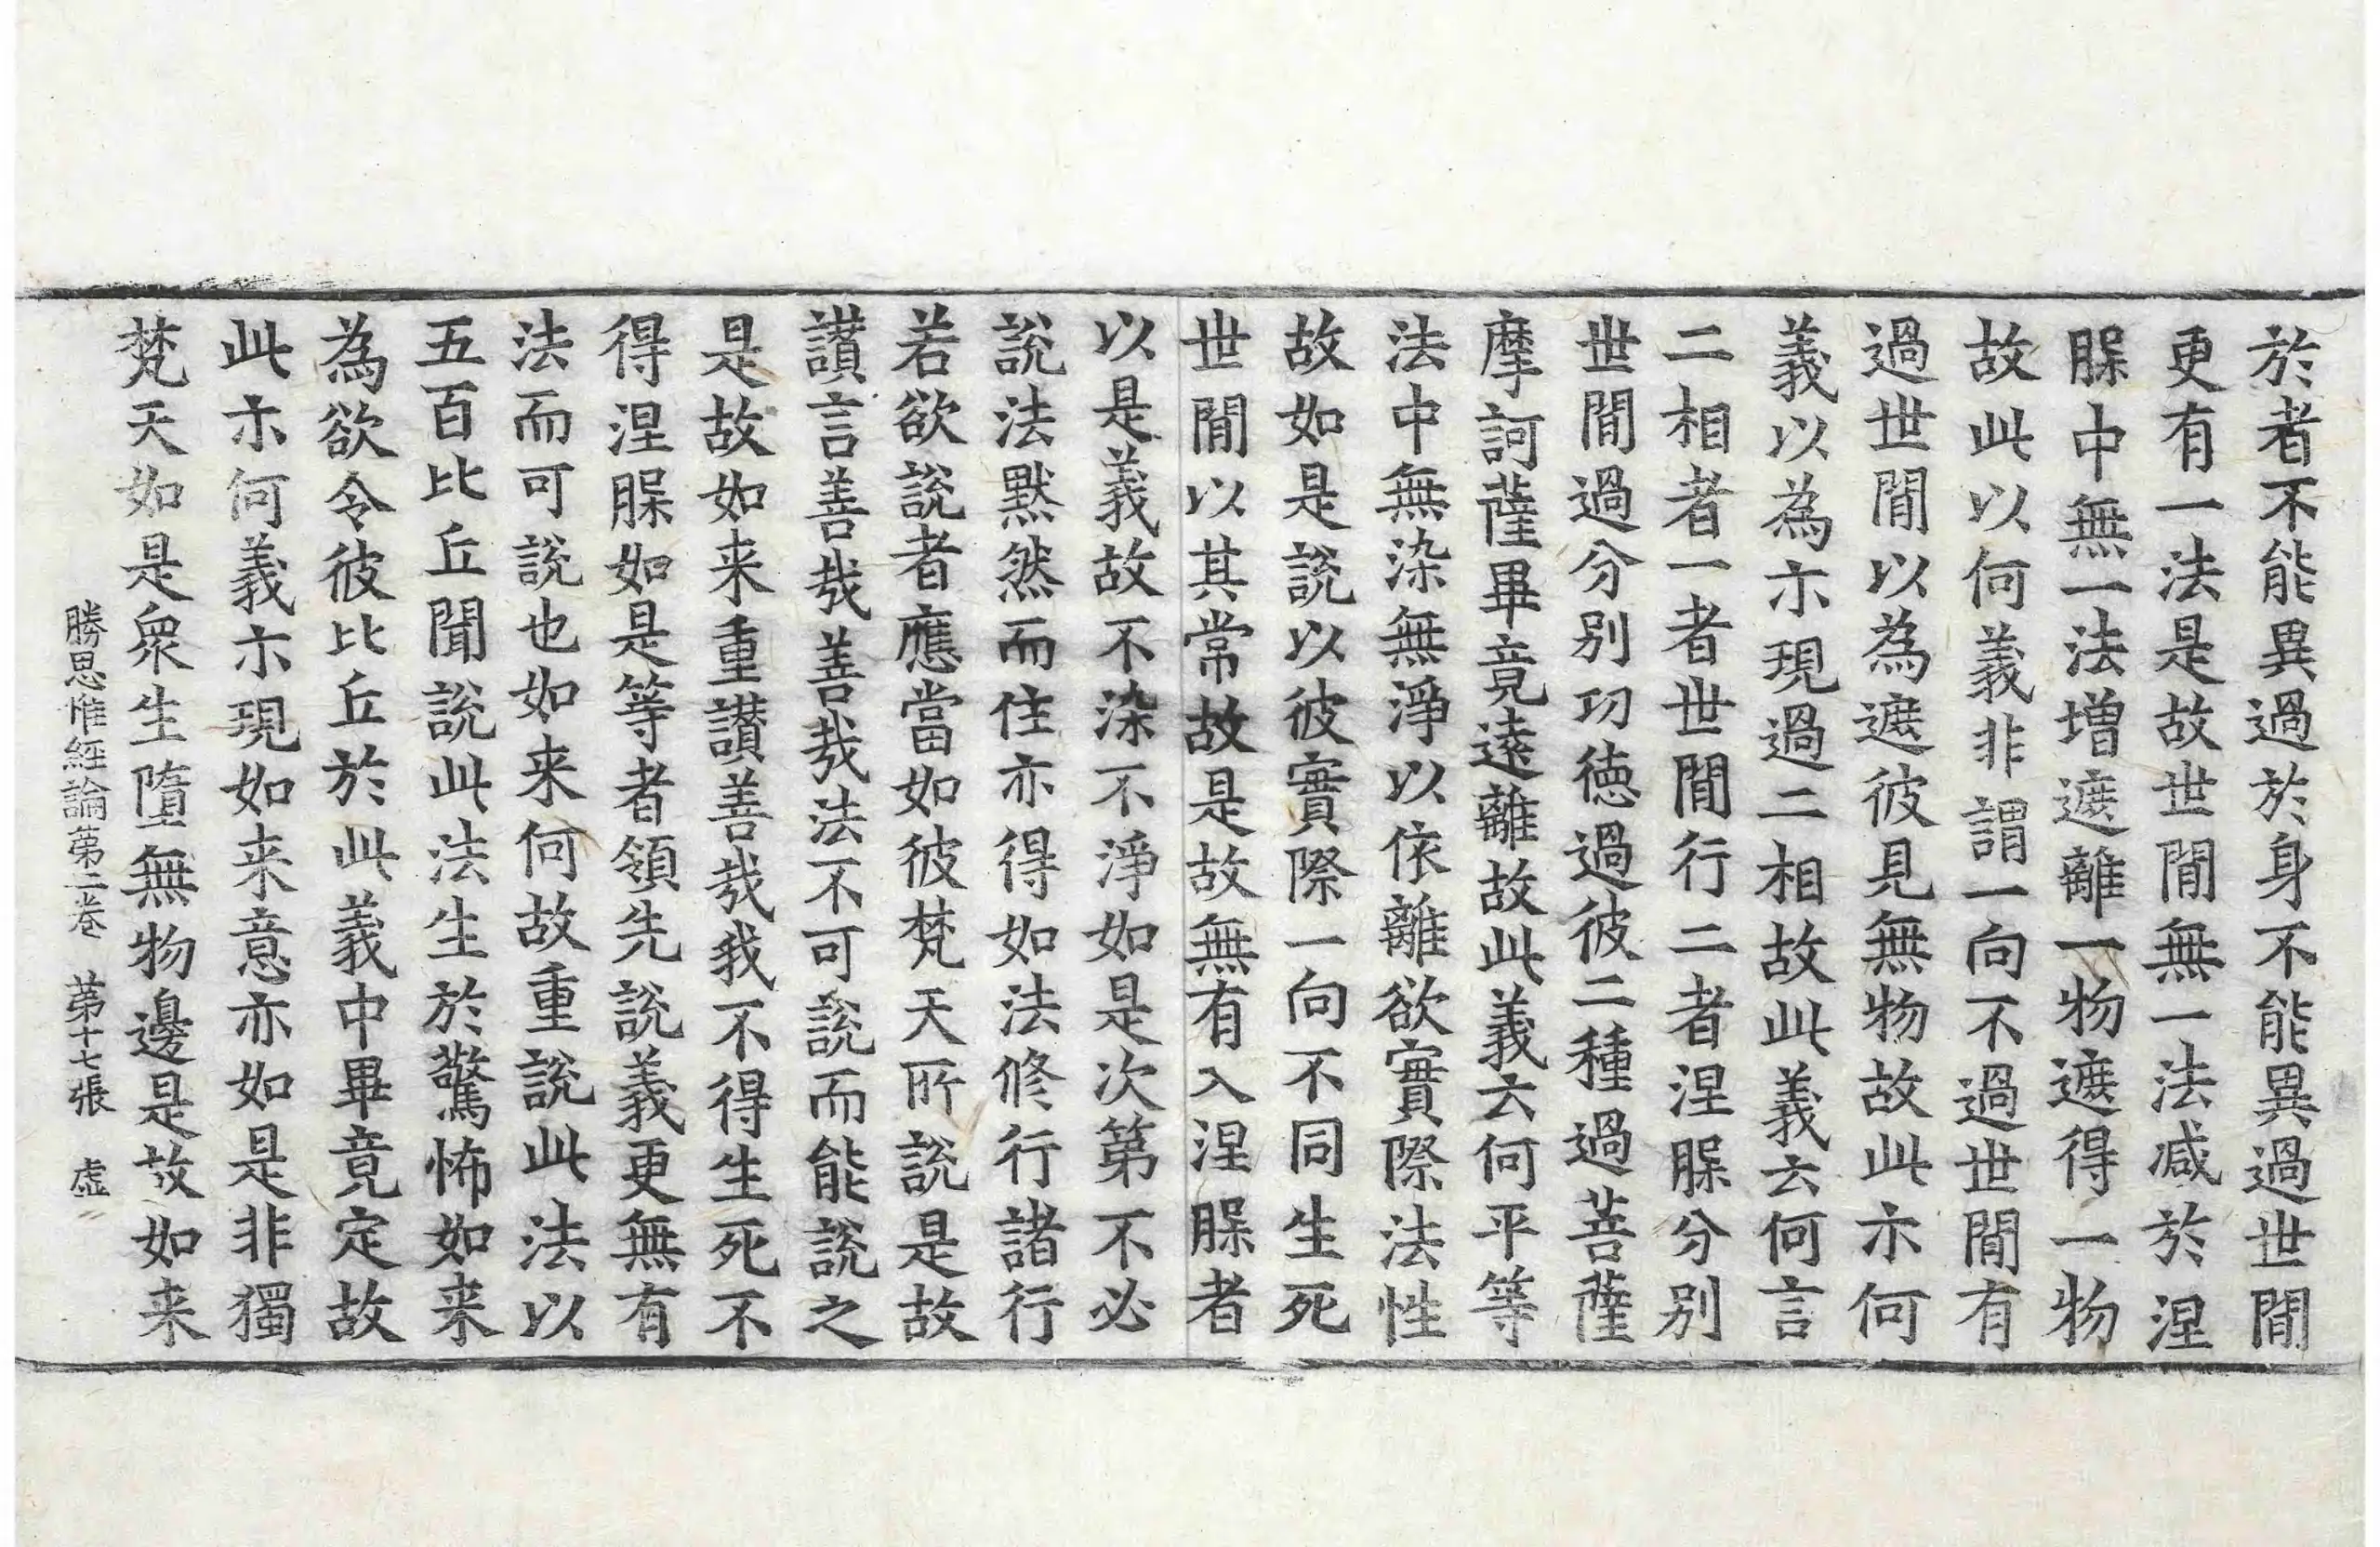 於者不能異過於身不能異過世閒
更有一法是故世閒無一法减於涅
䏶中無一法增遮離一物遮得一物
故此以何義非謂一向不過世閒有
過世閒以為遮彼見無物故此示何
義以為示現過二相故此義云何言
二相者一者世閒行二者涅䏶分別
世閒過分別功徳過彼二種過菩薩
摩訶薩畢竟逺離故此義云何平等
法中無染無淨以依離欲實際法性
故如是說以彼實際一向不同生死
世閒以其常故是故無有入涅䏶者
以是義故不染不淨如是次第不必
說法默然而住亦得如法修行諸行
若欲說者應當如彼梵天所說是故
讃言善哉善哉法不可說而能說之
是故如来重讃善哉我不得生死不
得涅䏶如是等者領先說義更無有
法而可說也如来何故重說此法以
五百比丘聞說此法生於驚怖如来
為欲令彼比丘於此義中畢竟定故
此示何義示現如来意亦如是非獨
梵天如是衆生墮無物邊是故如来
勝思惟經論苐二卷 苐十七張 虛